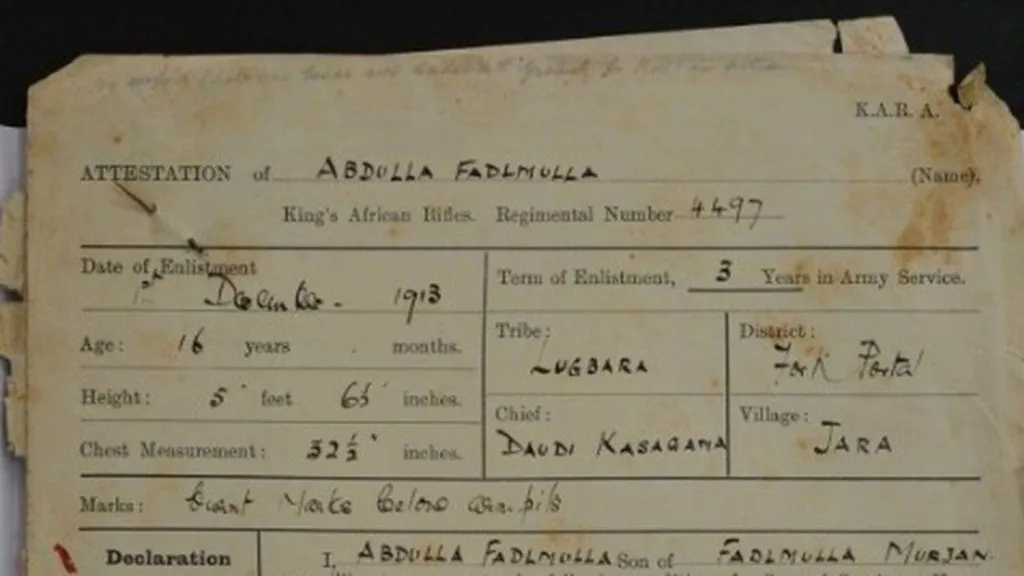 K.A.R. A.
ATTESTATION of ABDULLA FADLMULLA (Name).
King's African Rifles. Regimental Number 4497
Date of Enlistment
1st December. 1913
Term of Enlistment, 3 Years in Army Service.
Age: 16 years . months.
Tribe: LUGBARA
District: Fort Portal
Height: 5' feet 6½ inches.
Chest Measurement: 32½" inches.
Chief: DAUDI KASAGAMA
Village: JARA
Marks: Burnt Marks below armpits
Declaration
I, ABDULLA FADLMULLA Son of FADLMULLA MURJAN.